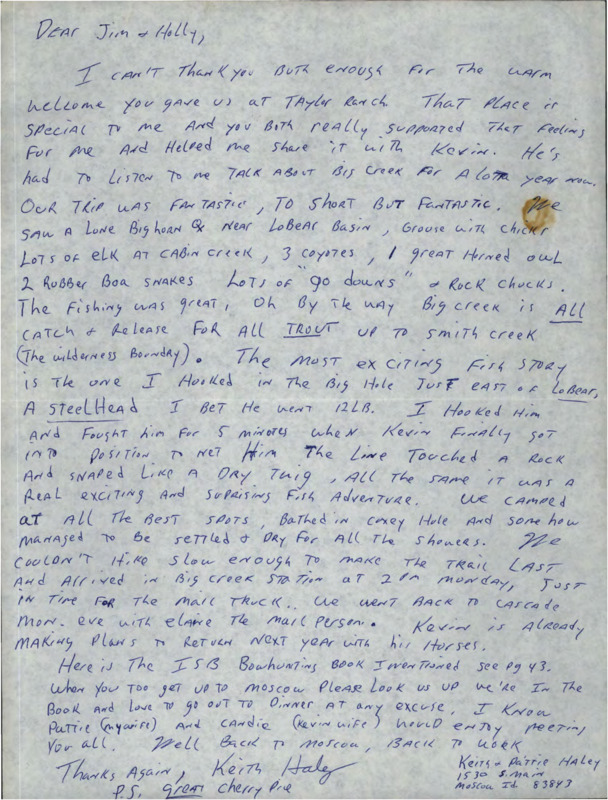 Dear Jim & Holly,
I can't thank you both enough for the warm
welcome you gave us at Taylor Ranch. That place is
special to me and you both really supported that feelings
for me and helped me share it with Kevin. He's
had to listen to me talk about Big Creek for a lotta year now.
Our trip was fantastic, to short but fantastic. We
saw a lone Bighorn near LoBear Basin, Grouse with chicks
Lots of elk at Cabin Creek, 3 coyotes, 1 great Horned owl
2 Rubber Boa snakes Lots of "go downs" & Rock chucks.
The fishing was great, oh by the way Big creek is All
catch & release for all TROUT up to smith creek
(The wilderness Boundry). The most exciting Fish story
is the one I Hooked in the Big Hole Just east of LoBear,
A SteelHead I bet he went 12LB. I Hooked Him
and fought him for 5 minutes when Kevin finally got
into position to net Him The Line Touched a rock
and snaped like a dry twig, all the same it was a
real exciting and suprising Fish Adventure. We camped
at all the best spots, Bathed in coxey Hole and somehow
managed to be settled & dry for all the showers. We
couldn't hike slow enough to make the trail last
and arrived in Big creek Station at 2 pm Monday, Just
in time for the mail truck.. We went back to Cascade
Mon. eve with elaine the mail person. Kevin is already
making plans to return next year with his Horses.
Here is the ISB Bowhunting book I mentioned see pg 43.
When you too get up to Moscow please look us up we're in the
book and love to go out to dinner at any excuse. I know
Pattie (my wife) and Candie (Kevin wife) would enjoy meeting
you all. Well back to Moscow, back to work
Thanks Again, Keith Haley
P.S. Great cherry Pie
Keith & Pattie Haley
1530 S. Main
Moscow Id. 83843